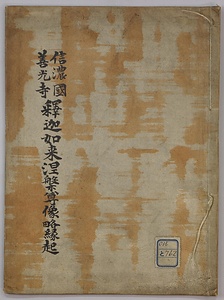 信濃國
善光寺
釋迦如来涅槃尊像略縁起